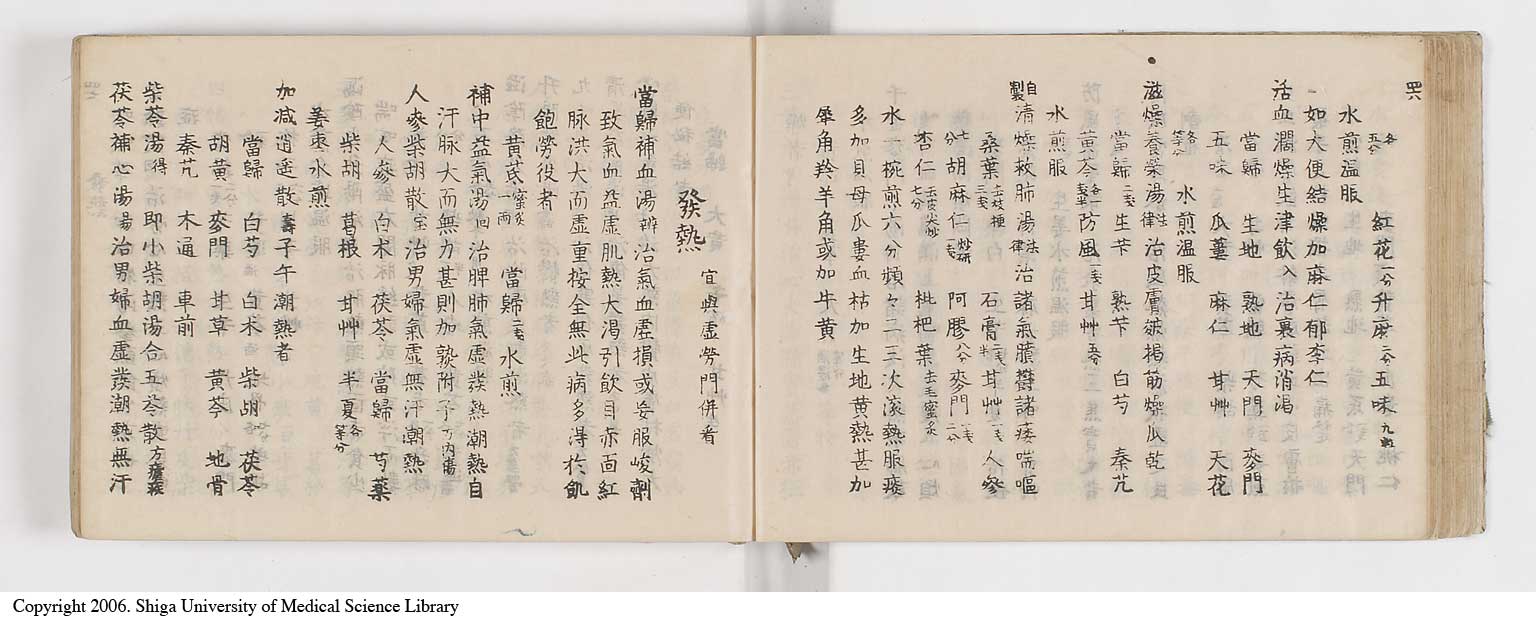 四六
各五分 紅花二分 升麻二分 五味九粒
水煎温服
如大便結燥加麻仁郁李仁
活血潤燥生津飲入 治裏病消渴
當歸 生地 熟地 天門 麥門
五味 瓜蔞 麻仁 甘艸 天花
各等分 水煎温服
滋燥養榮湯 治皮膚皴揭筋燥瓜乾
當歸二戔 生芐 熟芐 白芍 秦艽
黄芩各一戔 防風一戔 甘艸五分
水煎服
自製清燥救肺湯法律 治諸氣膹欝諸痿喘嘔
桑葉去枝梗三戔 石膏二戔半 甘艸一戔 人參
七分 胡麻仁炒研一戔 阿膠八分 麥門一戔二分
杏仁去皮尖炒七分 枇杷葉去毛蜜炙
水一椀煎六分頻々二三次滚熱服痰
多加貝母瓜蔞血枯加生地黄熱甚加
犀角羚羊角或加牛黄
發熱 宜與虚勞門併看
當歸補血湯辨 治氣血虚損或妄服峻劑
致氣血益虚肌熱大渴引飲目赤面紅
脉洪大而虚重按全無此病多得於飢
飽勞役者
黄芪蜜炙一兩 當歸二戔 水煎
補中益氣湯 治脾肺氣虚發熱潮熱自
汗脉大而無力甚則加熟附子方内傷
人參柴胡散宝 治男婦氣虚無汗潮熱
人參 白朮 茯苓 當歸 芍藥
柴胡 葛根 甘艸 半夏各等分
姜棗水煎
加減逍遥散壽 子午潮熱者
當歸 白芍 白朮 柴胡 茯苓
胡黄 麥門 甘草 黄芩 地骨
秦艽 木通 車前
柴苓湯得 即小柴胡湯合五苓散方瘧疾
茯苓補心湯易 治男婦血虚發潮熱無汗
Copyright 2006. Shiga University of Medical Science Library